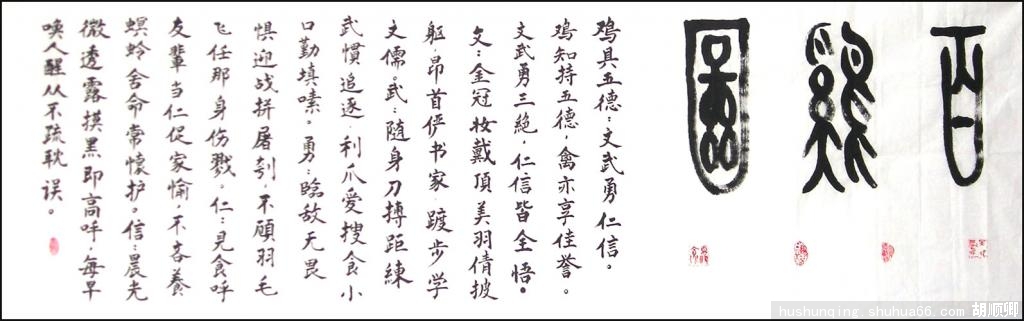 百
雞
圖
鸡具五德：文武勇仁信。
鸡知持五德，禽亦享佳誉。
文武勇三絶，仁信皆全悟。
文：金冠妆戴頂美羽倩披
躯．昂首俨书家．踱步学
文儒。武：随身刀搏距練
武慣追逐．利爪爱搜食．小
口勤填嗉。勇：臨敌无畏
惧迎战拼屠刳，不顾羽毛
飞任那身伤戮。仁：見食呼
友輩当仁促家愉，不吝養
螟蛉舍命常懷护。信：晨光
微透露摸黑即高呼．每早
唤人醒从不疏耽误。
hushunqing.shuhua66.com 胡顺卿